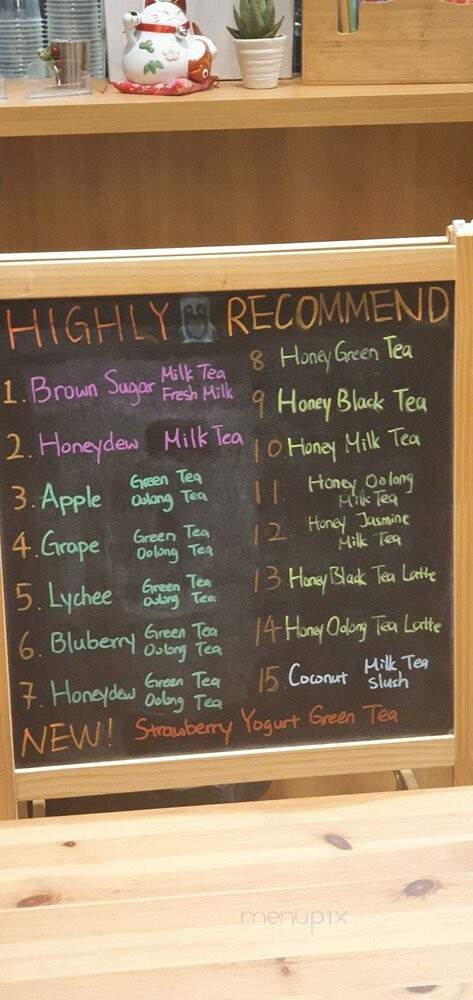 HIGHLY RECOMMEND
1. Brown Sugar Milk Tea
Fresh Milk
2. Honeydew Milk Tea
3. Apple Green Tea
Oolong Tea
4. Grape Green Tea
Oolong Tea
5. Lychee Green Tea
Oolong Tea
6. Bluberry Green Tea
Oolong Tea
7. Honeydew Green Tea
Oolong Tea
8 Honey Green Tea
9 Honey Black Tea
10 Honey Milk Tea
11. Honey Oolong
Milk Tea
12 Honey Jasmine
Milk Tea
13 Honey Black Tea Latte
14 Honey Oolong Tea Latte
15. Coconut Milk Tea
Slush
NEW! Strawberry Yogurt Green Tea
menupix